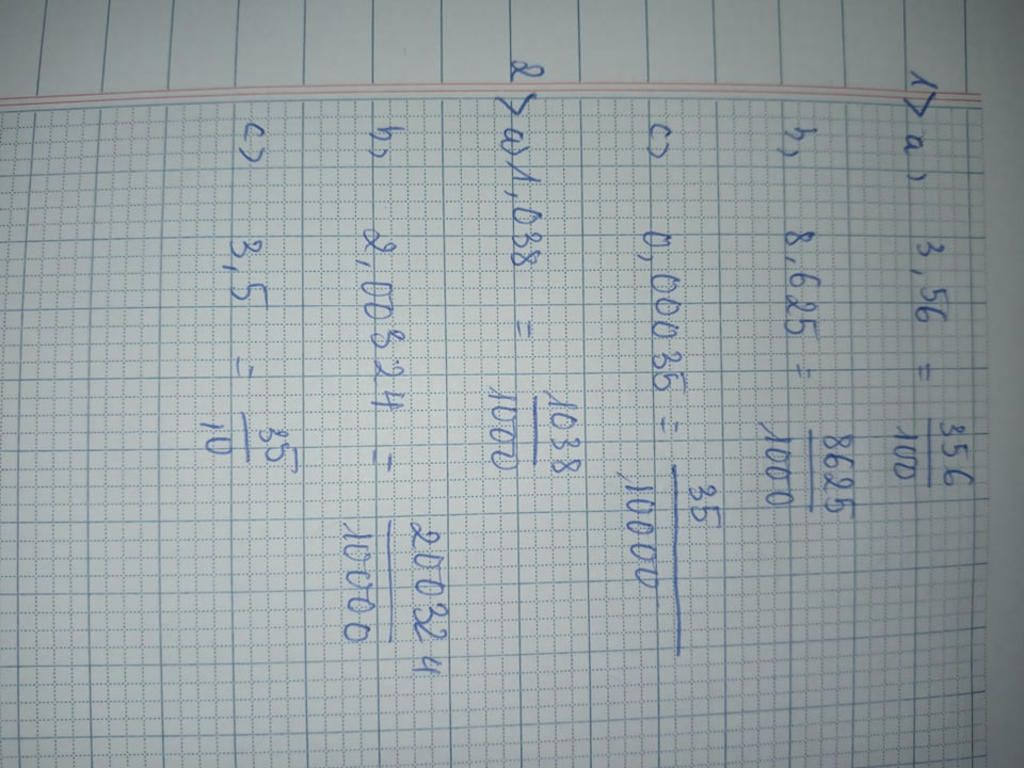 1> a) 3,56 = 356/100
b) 8,625 = 8625/1000
c) 0,00035 = 35/10000
2> a) 1,038 = 1038/1000
b) 2,00324 = 200324/10000
c) 3,5 = 35/10